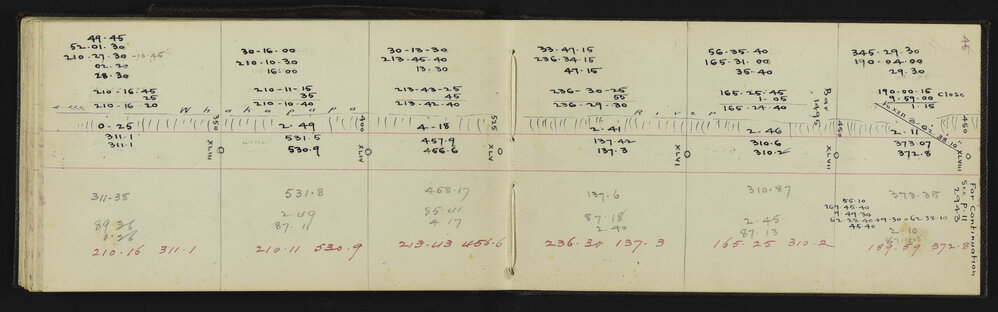 45
49-45
52.01.30
210-27.30 -10.45
02.20
28.30
210-16.45
25
210-16.20
0-25
311.1
311.1
311-38
210-16 311-1
30-16-00
210-10-30
16:00
210-11-15
35
210-10-40
2-49
531.5
530.9
531.8
2-49
87-11
210.11 530.9
30-13-30
213-45-40
13.30
213-43-25
45
213-42-40
4-18
457.9
456.6
458.17
85-41
4.17
213-43 456.6
33-47-15
236-34-15
47-15
236-30-25
55
236-29-30
2-41
137.42
137.3
137.6
87-18
2-40
236-30 137-3
56-35-40
165-31-00
35-40
165-25-45
1-05
165-24-40
2-46
310.6
310.2
310.87
2-45
87-13
165-25 310.2
345-29.30
190-04-00
29.30
190-00-15 Close
9-59-00
1-15
2-11
373.07
372.8
373.35
2-10
189.59 372.8
Whakapapa River
350
XLIII
400
XLIV
525
XLV
XLVI
Bar 1495
450
XLVII
460
XLVIII
55-10
269-45-40
9-49-30
45-40
For Continuation
See P. 11
2943